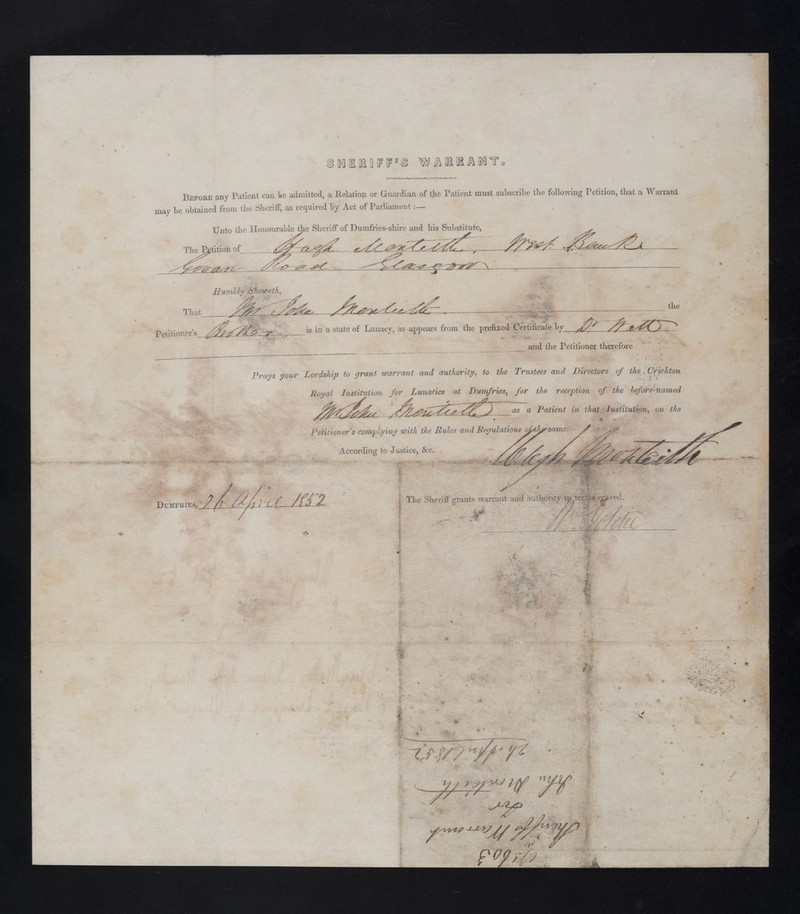 SHERIFF'S WARRANT.
BEFORE any Patient can be admitted, a Relation or Guardian of the Patient must subscribe the following Petition, that a Warrant
may be obtained from the Sheriff, as required by Act of Parliament :—
Unto the Honourable the Sheriff of Dumfries-shire and his Substitute,
The Petition of Hugh Monteith, West Bank
Govan Road Glasgow
Humbly Sheweth,
That Mr John Monteith the
Petitioner's Brother is in a state of Lunacy, as appears from the prefixed Certificate by Dr Watt
and the Petitioner therefore
Prays your Lordship to grant warrant and authority, to the Trustees and Directors of the Crichton
Royal Institution for Lunatics at Dumfries, for the reception of the before-named
Mr John Monteith as a Patient in that Institution, on the
Petitioner's complying with the Rules and Regulations of the same.
According to Justice, &c.
Hugh Monteith
DUMFRIES, 26 April 1852
The Sheriff grants warrant and authority in terms craved.
No 603
Sheriff's Warrant
for
John Monteith
26 April 1852